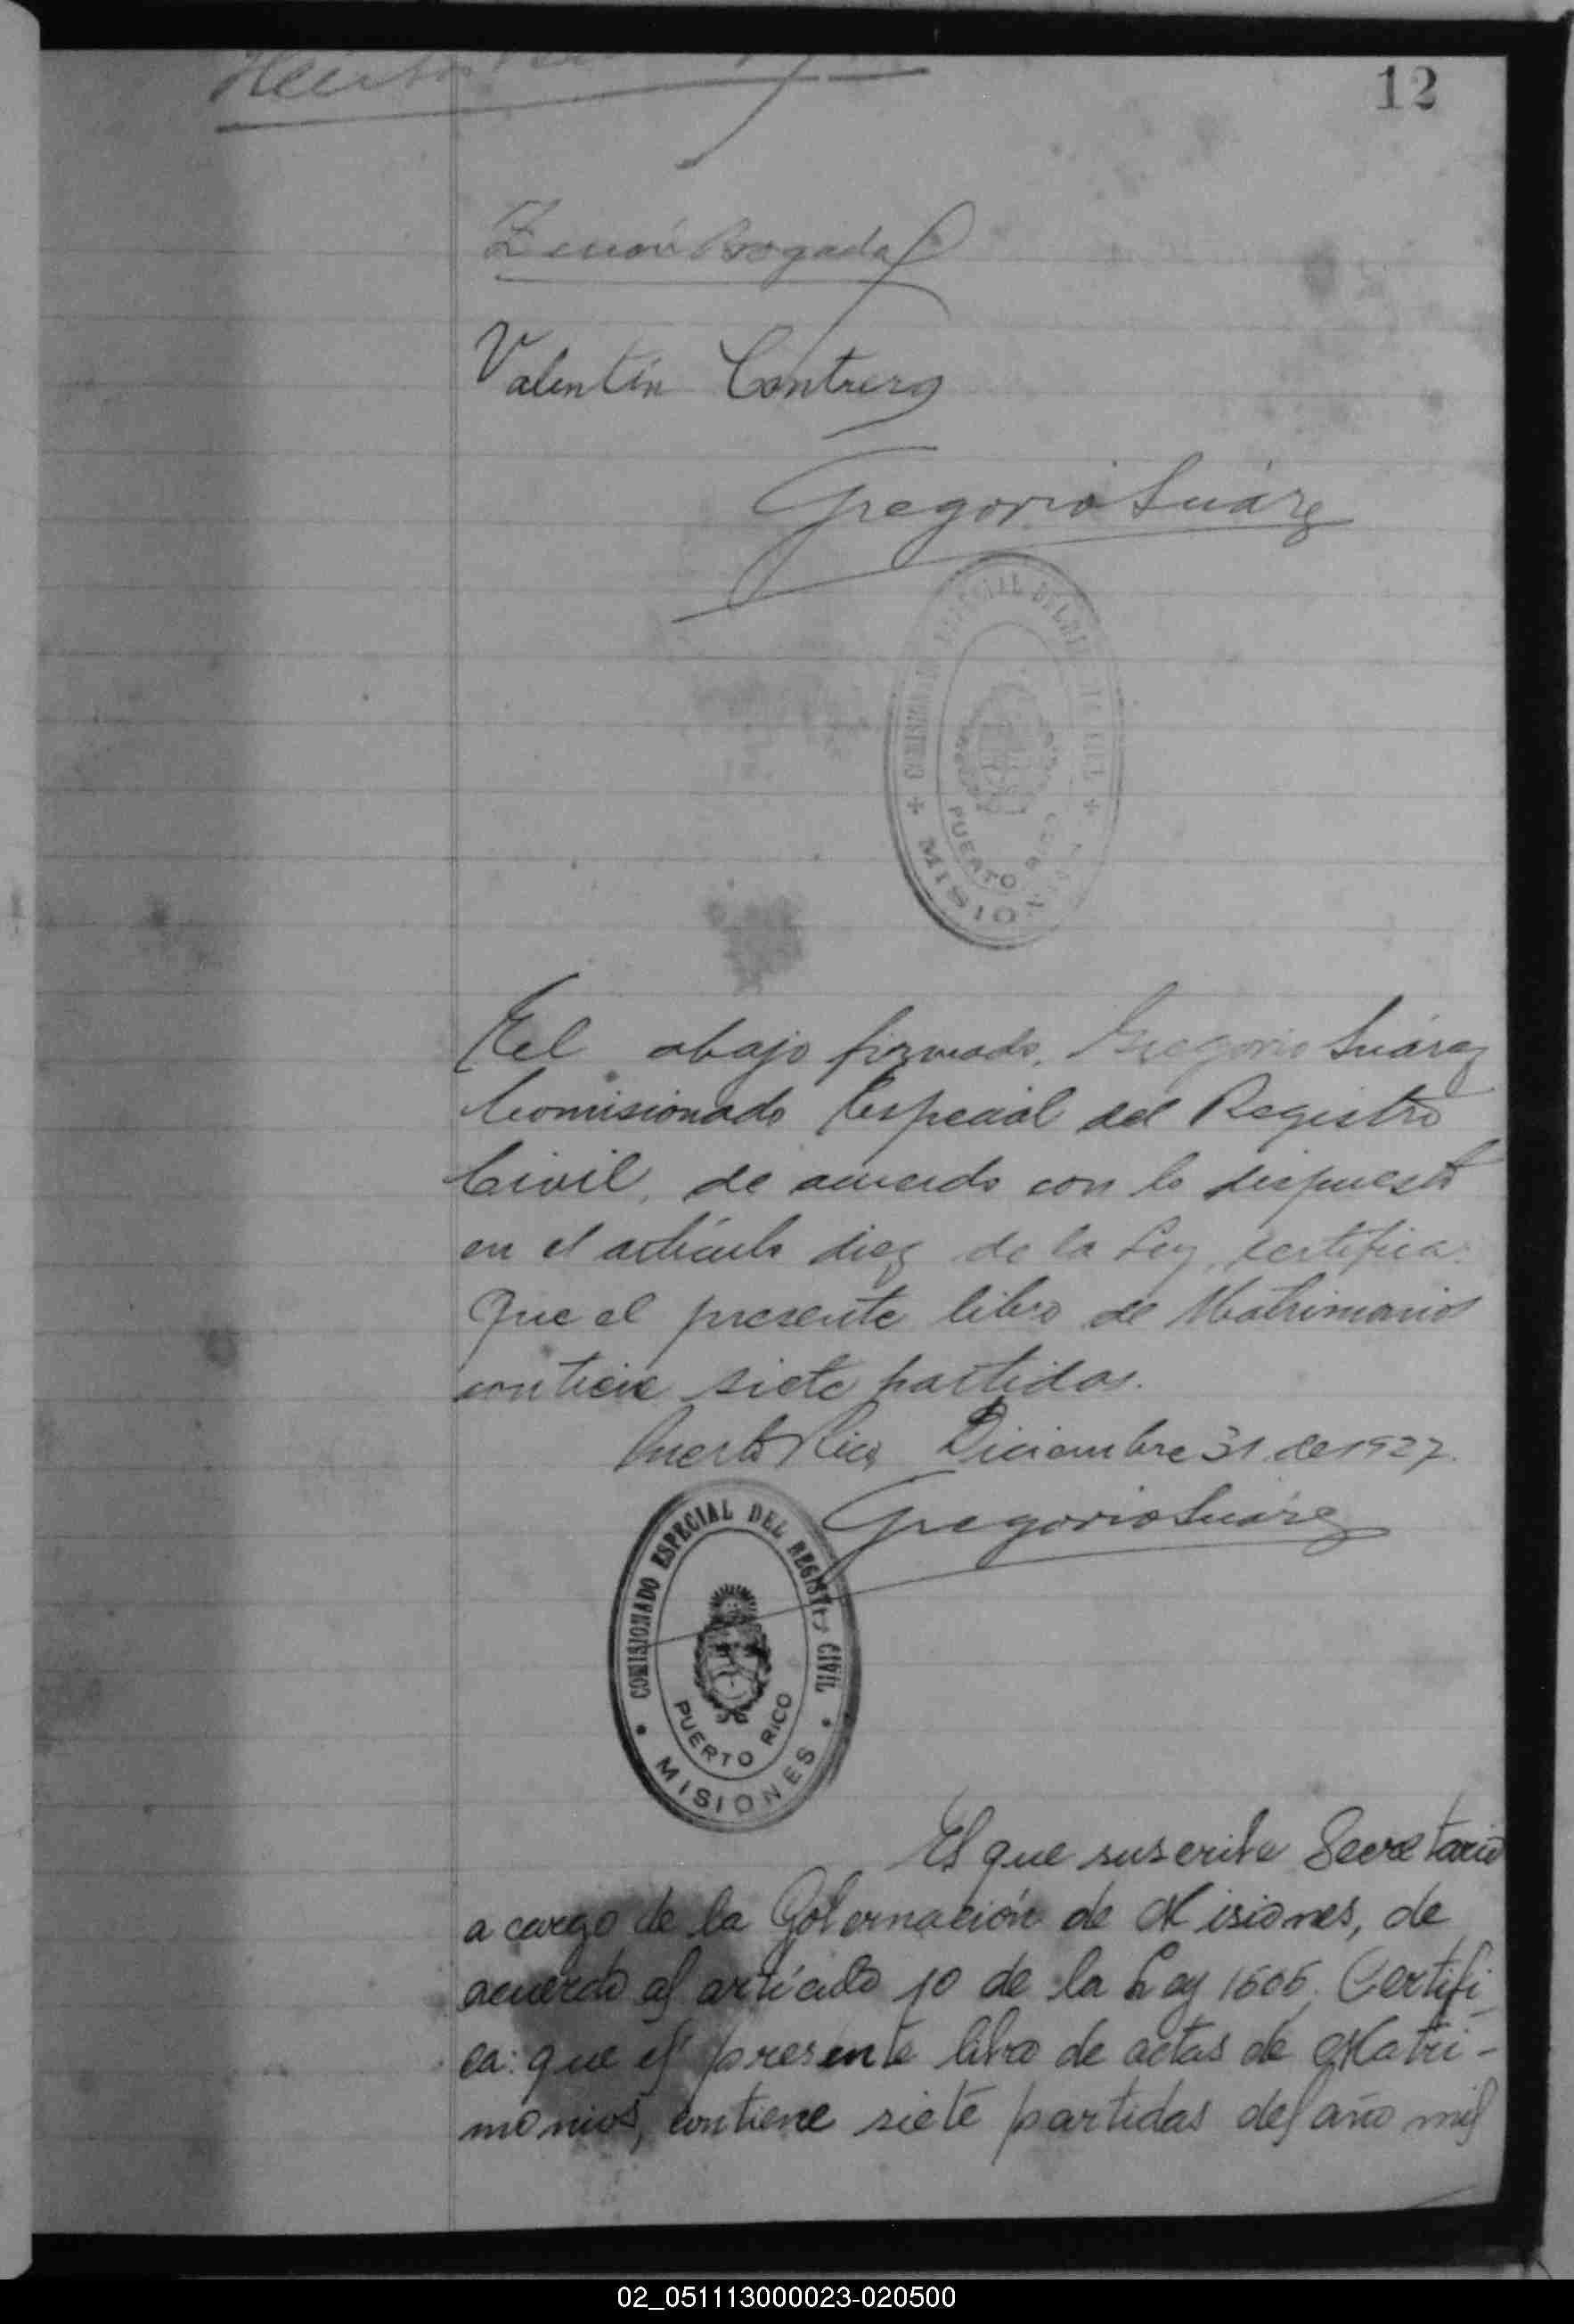 12
Zenón Bogado
Valentín Contrera
Gregorio Suárez
COMISIONADO ESPECIAL DEL REGISTRO CIVIL
PUERTO RICO
MISIONES
El abajo firmado, Gregorio Suárez
Comisionado Especial del Registro
Civil, de acuerdo con lo dispuesto
en el artículo diez de la Ley, certifica:
Que el presente libro de Matrimonios
contiene siete partidas.
Puerto Rico, Diciembre 31 de 1927.
Gregorio Suárez
COMISIONADO ESPECIAL DEL REGISTRO CIVIL
PUERTO RICO
MISIONES
El que suscribe Secretario
a cargo de la Gobernación de Misiones, de
acuerdo al artículo 10 de la Ley 1565, Certifi
ca: que el presente libro de actas de Matri-
monios, contiene siete partidas del año mil
02_051113000023-020500